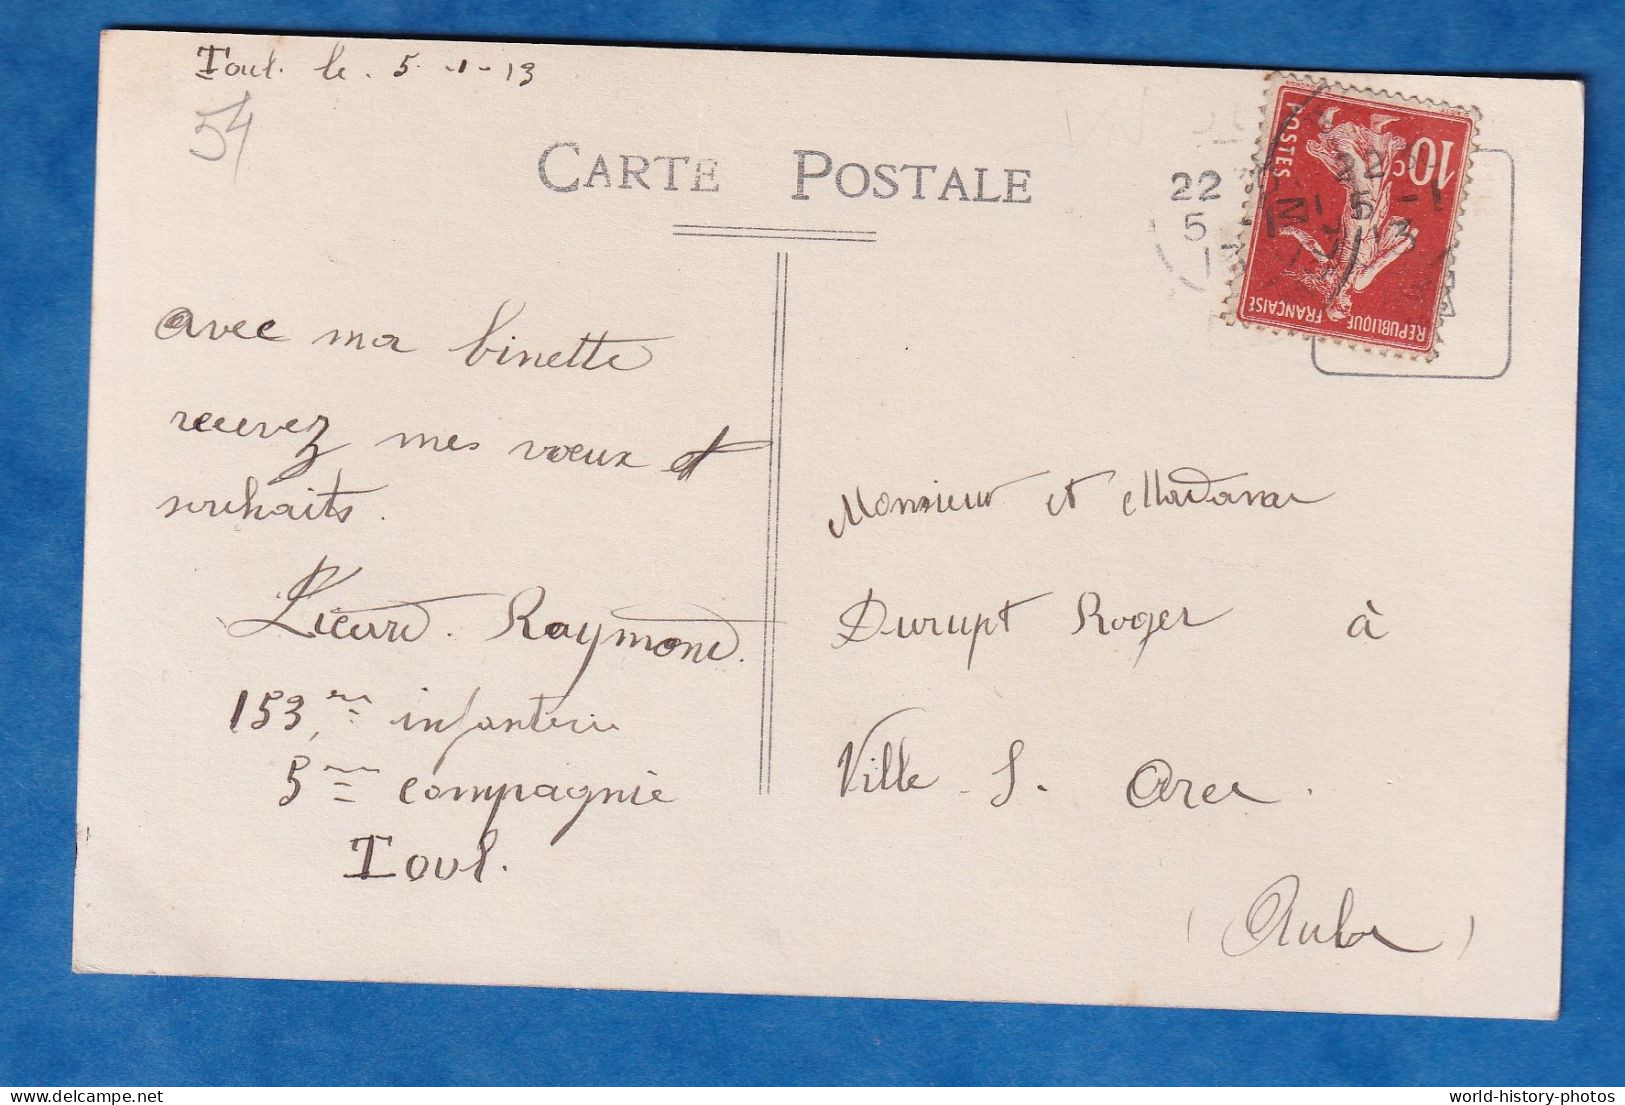 Toul. le 5-1-13
54
CARTE POSTALE
10c
POSTES
REPUBLIQUE
FRANÇAISE
22
5
1
22
5 -1
13
avec ma binette
recevez mes vœux et
souhaits.
Licard. Raymond.
153,me infanterie
5me compagnie
Toul.
Monsieur et Madame
Durupt Roger à
Ville S. Arce.
(Aube)
world-history-photos